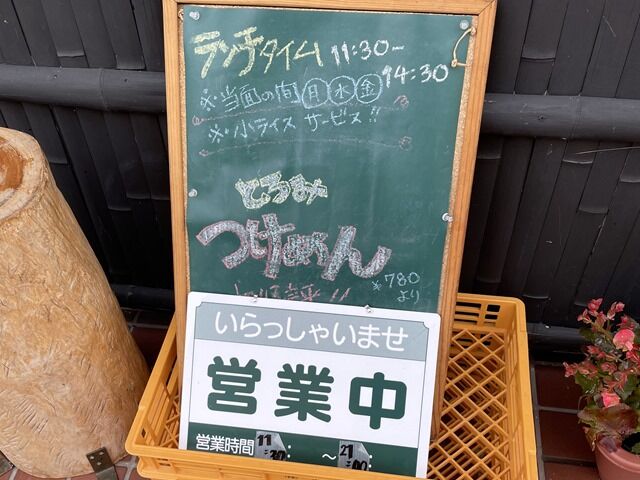 ランチタイム 11:30~
14:30
※当面の間 月 水 金
※小ライス サービス!!
とろみ
つけめん
¥780
より
いらっしゃいませ
営業中
営業時間 11:30 ~ 21:00